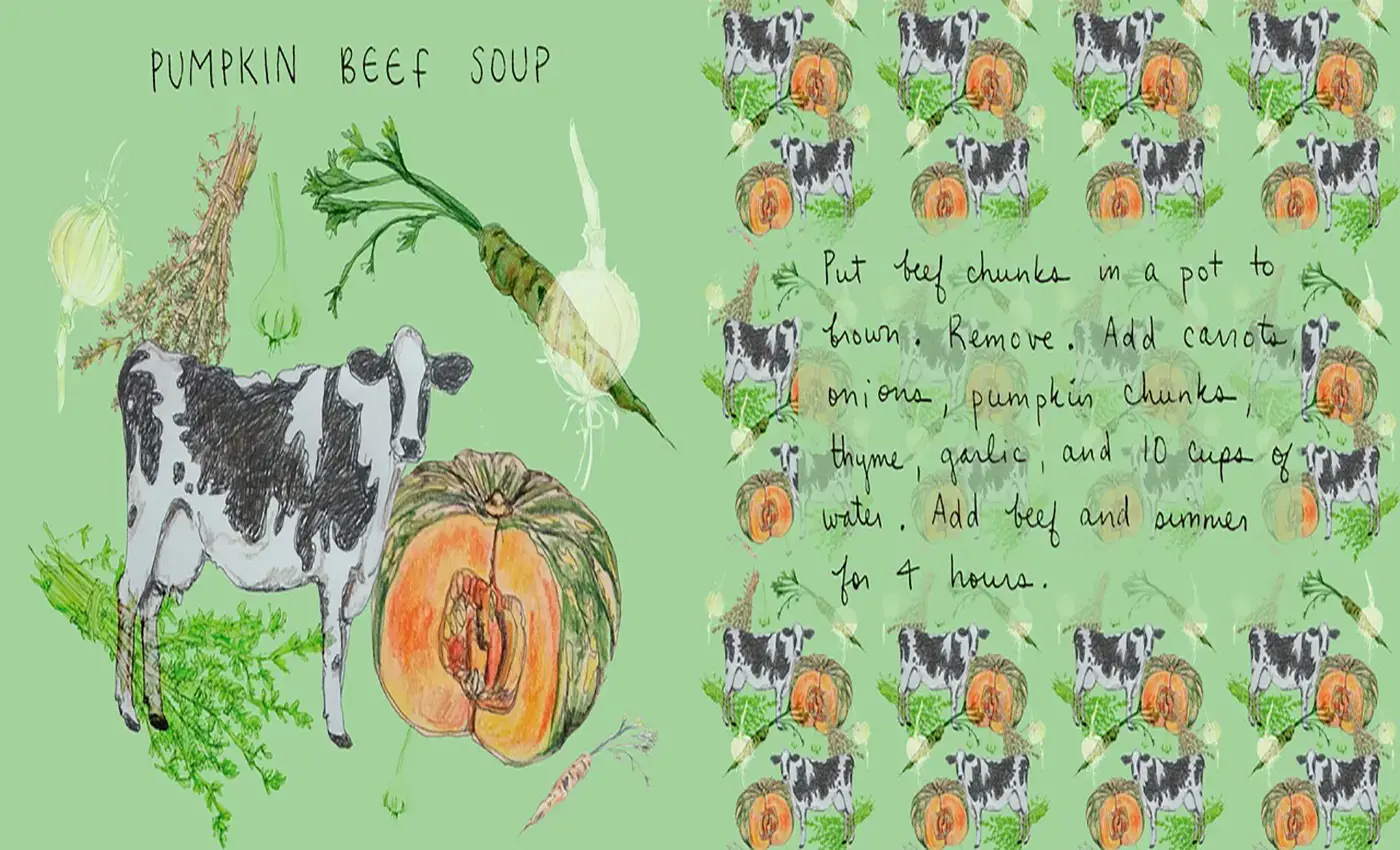 PUMPKIN BEEF SOUP
Put beef chunks in a pot to
brown. Remove. Add carrots,
onions, pumpkin chunks,
thyme, garlic, and 10 cups of
water. Add beef and simmer
for 4 hours.